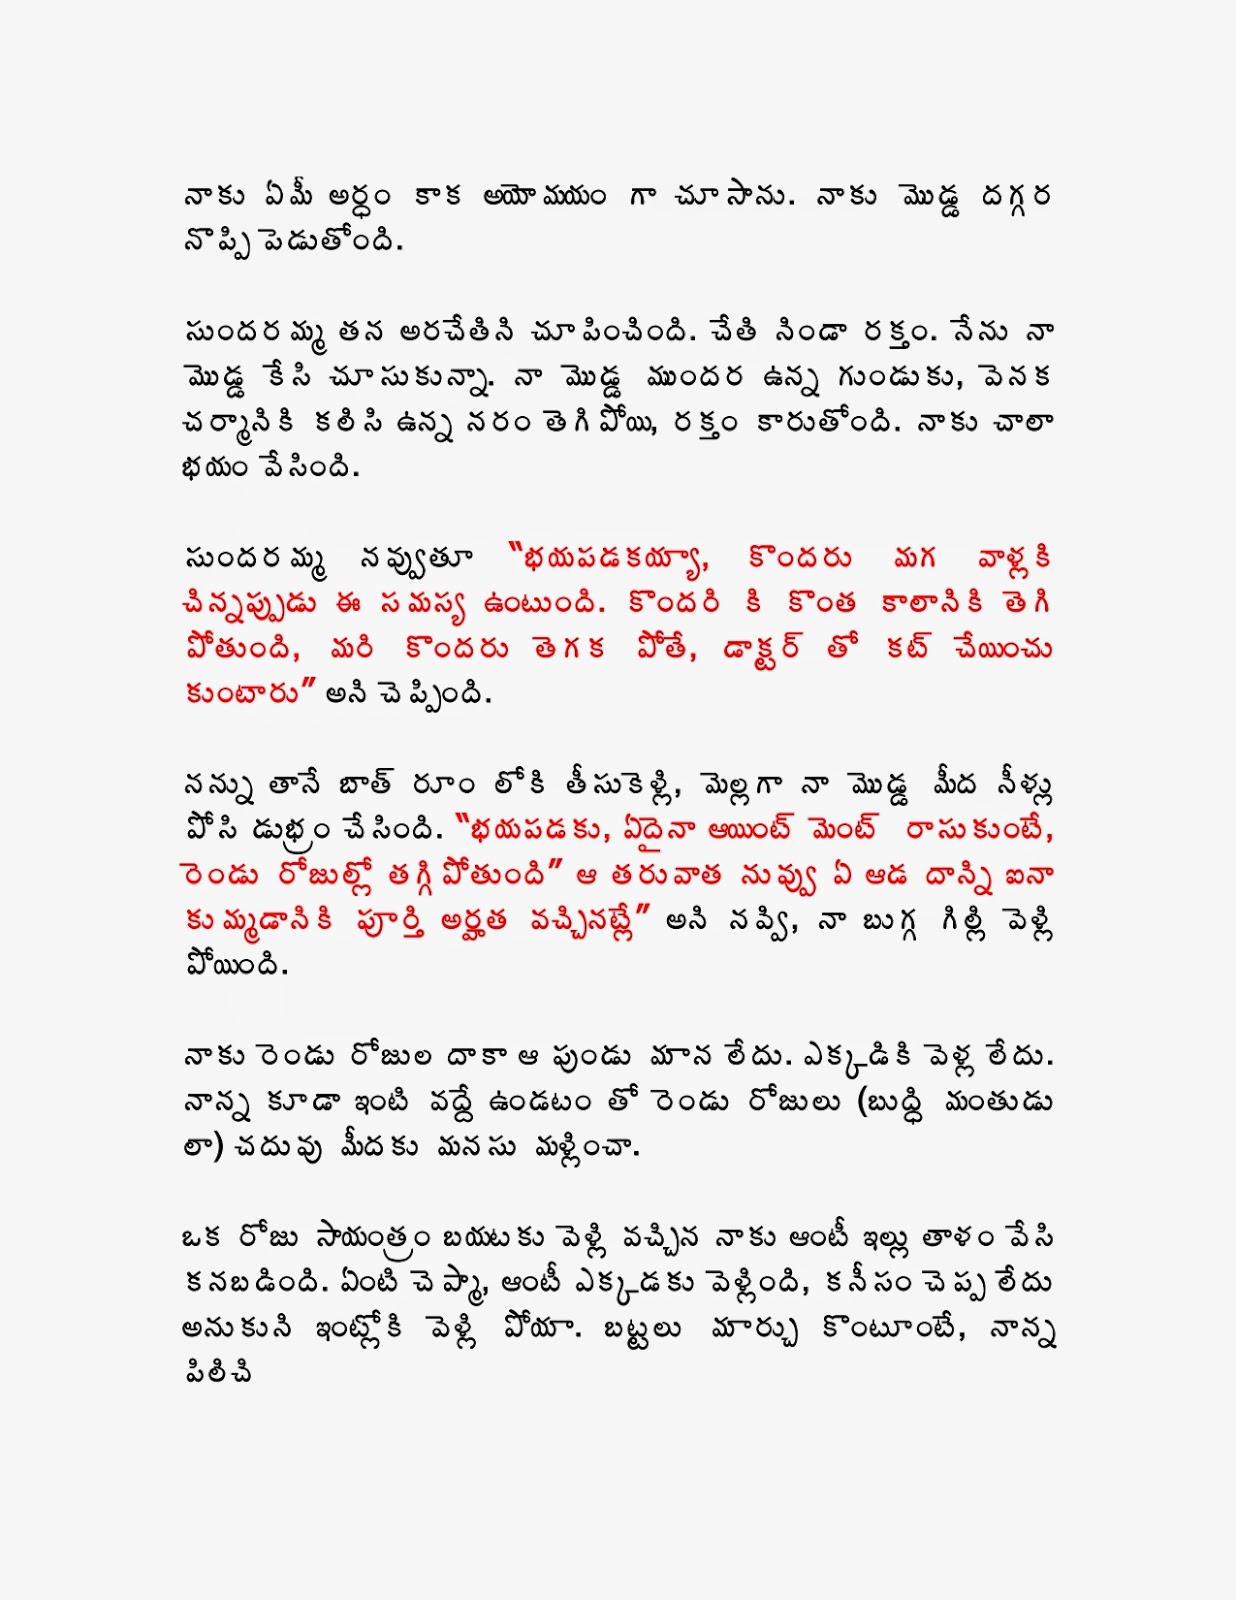 నాకు ఏమీ అర్ధం కాక అయోమయం గా చూసాను. నాకు మొడ్డ దగ్గర
నొప్పి పెడుతోంది.
సుందరమ్మ తన అరచేతిని చూపించింది. చేతి నిండా రక్తం. నేను నా
మొడ్డ కేసి చూసుకున్నా. నా మొడ్డ ముందర ఉన్న గుండుకు, వెనక
చర్మానికి కలిసి ఉన్న నరం తెగిపోయి, రక్తం కారుతోంది. నాకు చాలా
భయం వేసింది.
సుందరమ్మ నవ్వుతూ “భయపడకయ్యా, కొందరు మగ వాళ్లకి
చిన్నప్పుడు ఈ సమస్య ఉంటుంది. కొందరి కి కొంత కాలానికి తెగి
పోతుంది, మరి కొందరు తెగక పోతే, డాక్టర్ తో కట్ చేయించు
కుంటారు” అని చెప్పింది.
నన్ను తానే బాత్ రూం లోకి తీసుకెళ్లి, మెల్లగా నా మొడ్డ మీద నీళ్లు
పోసి డుభ్రం చేసింది. “భయపడకు, ఏదైనా ఆయింట్ మెంట్ రాసుకుంటే,
రెండు రోజుల్లో తగ్గిపోతుంది” ఆ తరువాత నువ్వు ఏ ఆడ దాన్ని ఐనా
కుమ్మడానికి పూర్తి అర్హత వచ్చినట్లే” అని నవ్వి, నా బుగ్గ గిల్లి వెళ్లి
పోయింది.
నాకు రెండు రోజుల దాకా ఆ పుండు మాన లేదు. ఎక్కడికి వెళ్ల లేదు.
నాన్న కూడా ఇంటి వద్దే ఉండటం తో రెండు రోజులు (బుద్ధి మంతుడు
లా) చదువు మీదకు మనసు మళ్లించా.
ఒక రోజు సాయంత్రం బయటకు వెళ్లి వచ్చిన నాకు ఆంటీ ఇల్లు తాళం వేసి
కనబడింది. ఏంటి చెప్మా, ఆంటీ ఎక్కడకు వెళ్లింది, కనీసం చెప్ప లేదు
అనుకుని ఇంట్లోకి వెళ్లి పోయా. బట్టలు మార్చు కొంటూంటే, నాన్న
పిలిచి